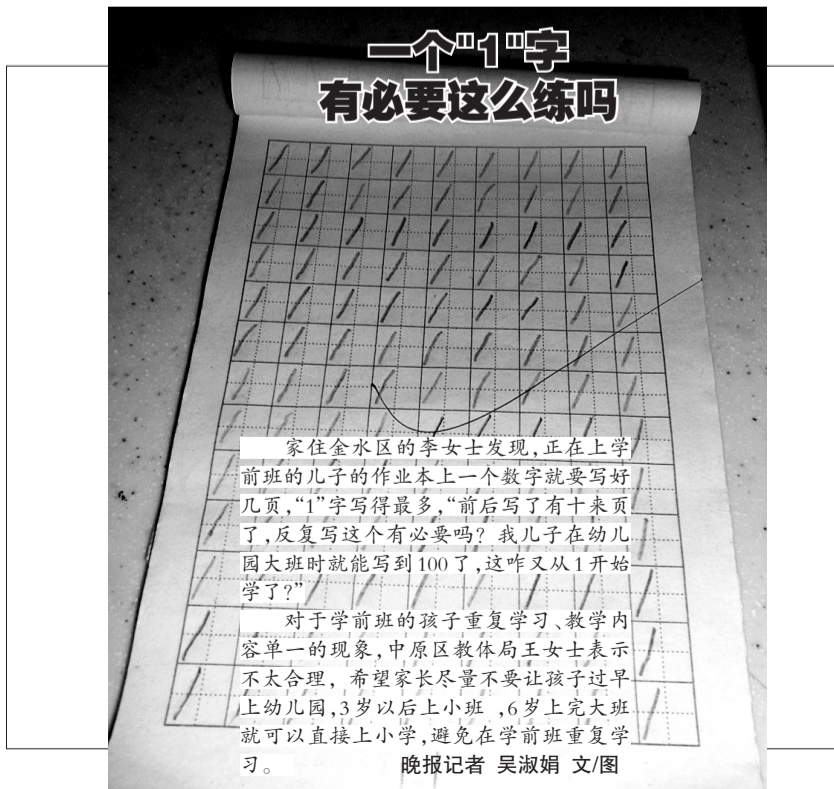 一个"1"字
有必要这么练吗
家住金水区的李女士发现,正在上学
前班的儿子的作业本上一个数字就要写好
几页,“1”字写得最多,“前后写了有十来页
了,反复写这个有必要吗？我儿子在幼儿
园大班时就能写到100了,这咋又从1开始
学了?”
对于学前班的孩子重复学习、教学内
容单一的现象,中原区教体局王女士表示
不太合理，希望家长尽量不要让孩子过早
上幼儿园,3岁以后上小班 ,6岁上完大班
就可以直接上小学,避免在学前班重复学
习。 晚报记者 吴淑娟 文/图